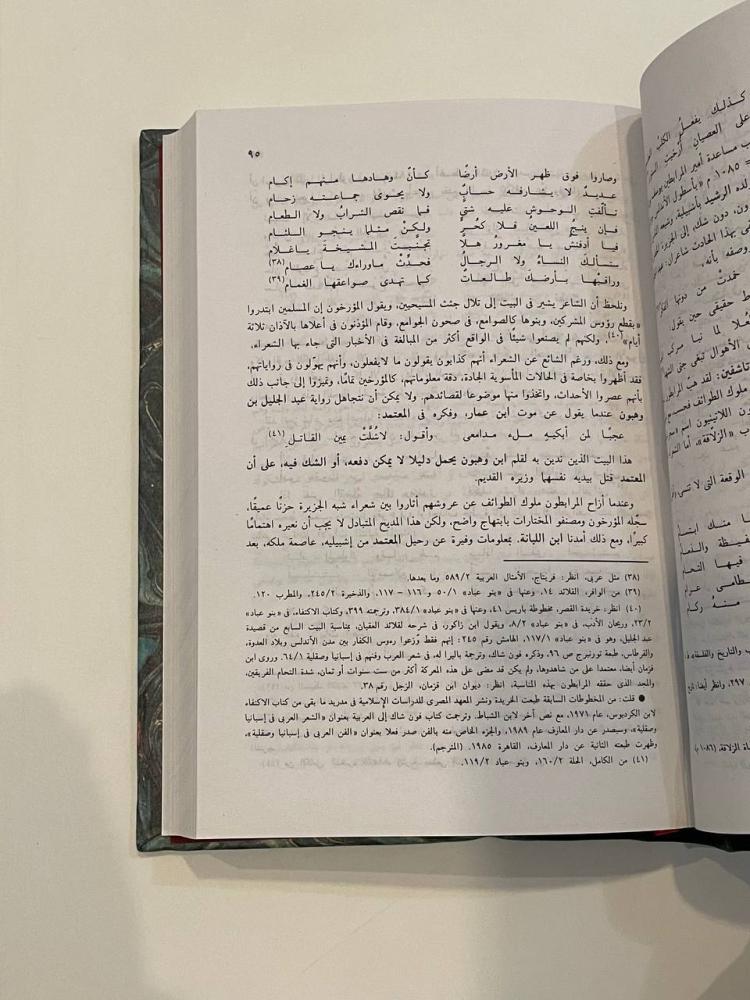 ٩٥
وصاروا فوق ظهر الأرض أرضًا كأنّ وهادها منهم إكام
عديدٌ لا يشارفه حسابٌ ولا يحوى جماعته زحام
تألّفتِ الوحوش عليه شتى فما نقص الشرابُ ولا الطعام
فإن ينجُ اللعين فلا كحُرٍ ولكنْ مثلما ينجو اللئام
فيا أدفنش يا مغرورُ هلّا تجنّبتَ المشيخة ياغلام
ستسألك النساءُ ولا الرجالُ فحدِّثْ ماوراءك يا عصام (٣٨)
وراقبْها بأرضك طالعات كما تهدى صواعقها الغمام (٣٩)
ونلحظ أن الشاعر يشير فى البيت إلى تلال جثث المسيحيين، ويقول المؤرخون إن المسلمين ابتدروا
«بقطع رؤوس المشركين، وبنوها كالصوامع، فى صحون الجوامع، وقام المؤذنون فى أعلاها بالآذان ثلاثة
أيام»(٤٠). ولكنهم لم يصنعوا شيئًا فى الواقع أكثر من المبالغة فى الأخبار التى جاء بها الشعراء.
ومع ذلك، ورغم الشائع عن الشعراء أنهم كذابون يقولون ما لايفعلون، وأنهم يهوّلون فى رواياتهم،
فقد أظهروا بخاصة فى الحالات المأسوية الجادة، دقة معلوماتهم، كالمؤرخين تمامًا، وتميّزوا إلى جانب ذلك
بأنهم عصروا الأحداث، واتخذوا منها موضوعا لقصائدهم. ولا يمكن أن نتجاهل رواية عبد الجليل بن
وهبون عندما يقول عن موت ابن عمار، وفكره فى المعتمد:
عجبًا لمن أبكيهِ ملء مدامعى وأقول: لاشُلَّتْ يمين القاتـل (٤١)
هذا البيت الذين ندين به لقلم ابن وهبون يحمل دليلا لا يمكن دفعه، أو الشك فيه، على أن
المعتمد قتل بيديه نفسهما وزيره القديم.
وعندما أزاح المرابطون ملوك الطوائف عن عروشهم أثاروا بين شعراء شبه الجزيرة حزنًا عميقا،
سجّله المؤرخون ومصنفو المختارات بابتهاج واضح، ولكن هذا المديح المتبادل لا يجب أن نعيره اهتمامًا
كبيرًا، ومع ذلك أمدنا ابن اللبانة، بمعلومات وفيرة عن رحيل المعتمد من إشبيليه، عاصمة ملكه، بعد
(٣٨) مثل عربى، انظر: فريتاج، الأمثال العربية ٥٨٩/٢ وما بعدها.
(٣٩) من الوافر، القلائد ١٤، وعنها فى «بنو عباد» ٥٠/١ و ١١٦ – ١١٧، والذخيرة ٢٤٥/٢، والمطرب ١٢٠.
(٤٠) انظر: خريدة القصر، مخطوطة باريس ٤١، وعنها فى «بنو عباد» ٣٨٤/١، وترجمته ٣٩٩، وكتاب الاكتفاء، فى «بنو عباد»
٢٣/٢، وريحان الألباب، فى «بنو عباد» ٨/٢، ويقول ابن زاكور، فى شرحه لقلائد العقيان، بمناسبة البيت السابع من قصيدة
عبد الجليل، وهو فى «بنو عباد» ١١٧/١، الهامش رقم ٢٤٥: إنهم فقط وُزعوا رءوس الكفار بين مدن الأندلس وبلاد العدوة،
والقرطاس، طبعة تورنبرج ص ٩٦، وذكره فون شاك، وترجمة باليرا له، فى شعر العرب وفنهم فى إسبانيا وصقلية ٦٤/١. وروى ابن
قزمان أيضا، معتمدا على من شاهدوها، ولم يكن قد مضى على هذه المعركة أكثر من ست سنوات أو ثمان، شدة التحام الفريقين،
والمجد الذى حققه المرابطون بهذه المناسبة، انظر: ديوان ابن قزمان، الزجل رقم ٣٨.
● قلت: من المخطوطات السابقة طبعت الخريدة ونشر المعهد المصرى للدراسات الإسلامية فى مدريد ما بقى من كتاب الاكتفاء
لابن الكردبوس، عام ١٩٧١، مع نص آخر لابن الشباط، وترجمت كتاب فون شاك إلى العربية بعنوان «الشعر العربى فى إسبانيا
وصقلية»، وسيصدر عن دار المعارف عام ١٩٨٩، والجزء الخاص منه بالفن صدر فعلا بعنوان «الفن العربى فى إسبانيا وصقلية»،
وظهرت طبعته الثانية عن دار المعارف، القاهرة ١٩٨٥. (المترجم).
(٤١) من الكامل، الحلة ١٦٠/٢، وبنو عباد ١١٩/٢.
كـذلـك يفعـل الكلب
على العصيان
مساعدة أمير المرابطين
١٠٨٥ م
الرشيد بأشبيلية
دون شك، إلى الجزيرة
بهذا الحادث شاعران:
حقيقى حين يقول
الأهوال تبقى
تاشفين: لقد
ملوك الطوائف
اللاتينيون اسم
«الزلّاقة»، أما
الوقعة التى لا تنسى
منـك
فيهـا
عـرام
منـه ركام
والتاريخ والفلسفة
٢٩٧، وانظر أيضا:
الزلاقة،